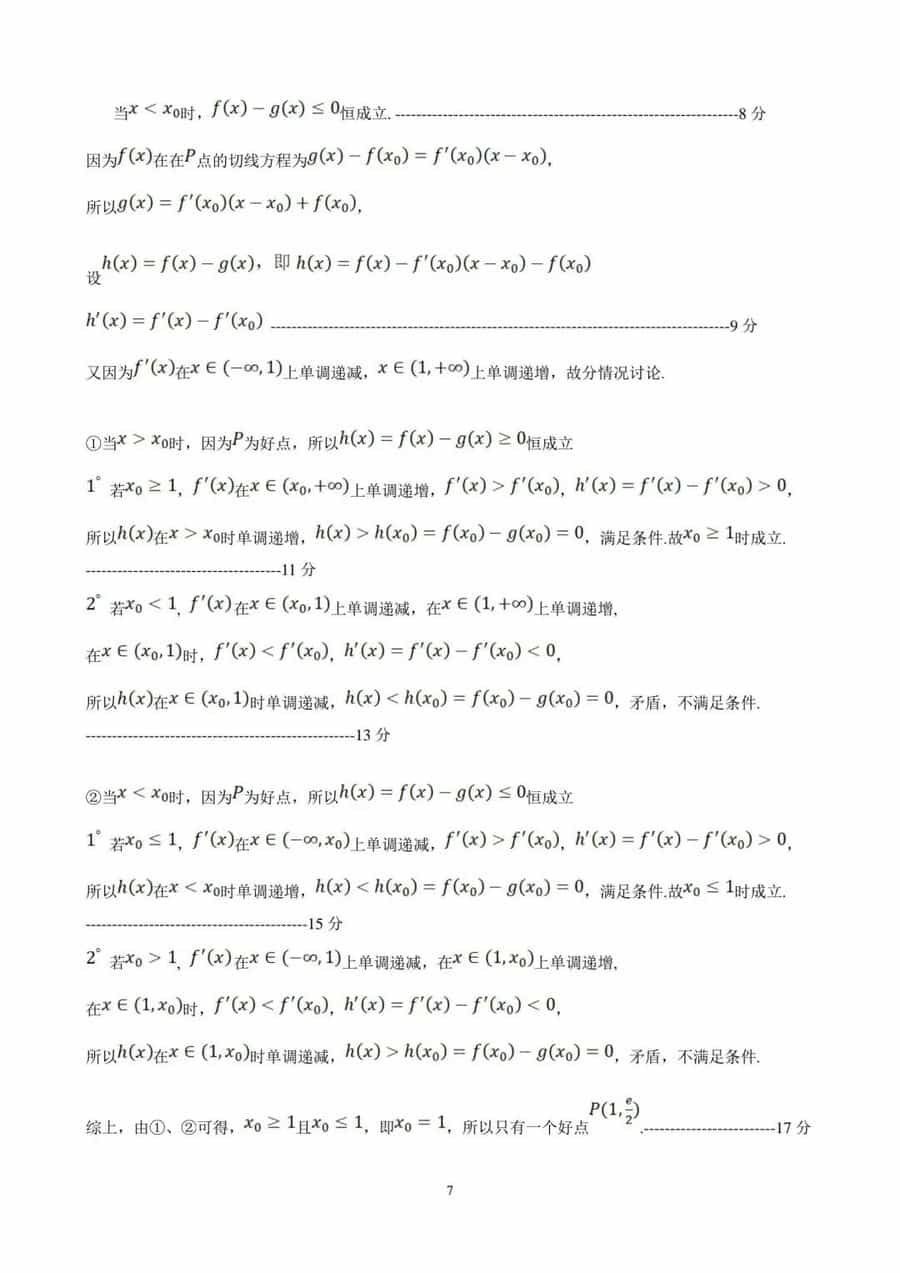 当x < x₀时，f(x) − g(x) ≤ 0恒成立. -----------------------------------------------------------------8 分
因为f(x)在在P点的切线方程为g(x) − f(x₀) = f′(x₀)(x − x₀)，
所以g(x) = f′(x₀)(x − x₀) + f(x₀)，
设h(x) = f(x) − g(x)，即 h(x) = f(x) − f′(x₀)(x − x₀) − f(x₀)
h′(x) = f′(x) − f′(x₀) ---------------------------------------------------------------------------------------9 分
又因为f′(x)在x ∈ (−∞, 1)上单调递减，x ∈ (1, +∞)上单调递增，故分情况讨论.
①当x > x₀时，因为P为好点，所以h(x) = f(x) − g(x) ≥ 0恒成立
1° 若x₀ ≥ 1，f′(x)在x ∈ (x₀, +∞)上单调递增，f′(x) > f′(x₀)，h′(x) = f′(x) − f′(x₀) > 0，
所以h(x)在x > x₀时单调递增，h(x) > h(x₀) = f(x₀) − g(x₀) = 0，满足条件.故x₀ ≥ 1时成立.
-------------------------------------11 分
2° 若x₀ < 1，f′(x)在x ∈ (x₀, 1)上单调递减，在x ∈ (1, +∞)上单调递增,
在x ∈ (x₀, 1)时，f′(x) < f′(x₀)，h′(x) = f′(x) − f′(x₀) < 0，
所以h(x)在x ∈ (x₀, 1)时单调递减，h(x) < h(x₀) = f(x₀) − g(x₀) = 0，矛盾，不满足条件.
---------------------------------------------------13 分
②当x < x₀时，因为P为好点，所以h(x) = f(x) − g(x) ≤ 0恒成立
1° 若x₀ ≤ 1，f′(x)在x ∈ (−∞, x₀)上单调递减，f′(x) > f′(x₀)，h′(x) = f′(x) − f′(x₀) > 0，
所以h(x)在x < x₀时单调递增，h(x) < h(x₀) = f(x₀) − g(x₀) = 0，满足条件.故x₀ ≤ 1时成立.
------------------------------------------15 分
2° 若x₀ > 1，f′(x)在x ∈ (−∞, 1)上单调递减，在x ∈ (1, x₀)上单调递增,
在x ∈ (1, x₀)时，f′(x) < f′(x₀)，h′(x) = f′(x) − f′(x₀) < 0，
所以h(x)在x ∈ (1, x₀)时单调递减，h(x) > h(x₀) = f(x₀) − g(x₀) = 0，矛盾，不满足条件.
综上，由①、②可得，x₀ ≥ 1且x₀ ≤ 1，即x₀ = 1，所以只有一个好点P(1, e/2).-------------------------17 分
7